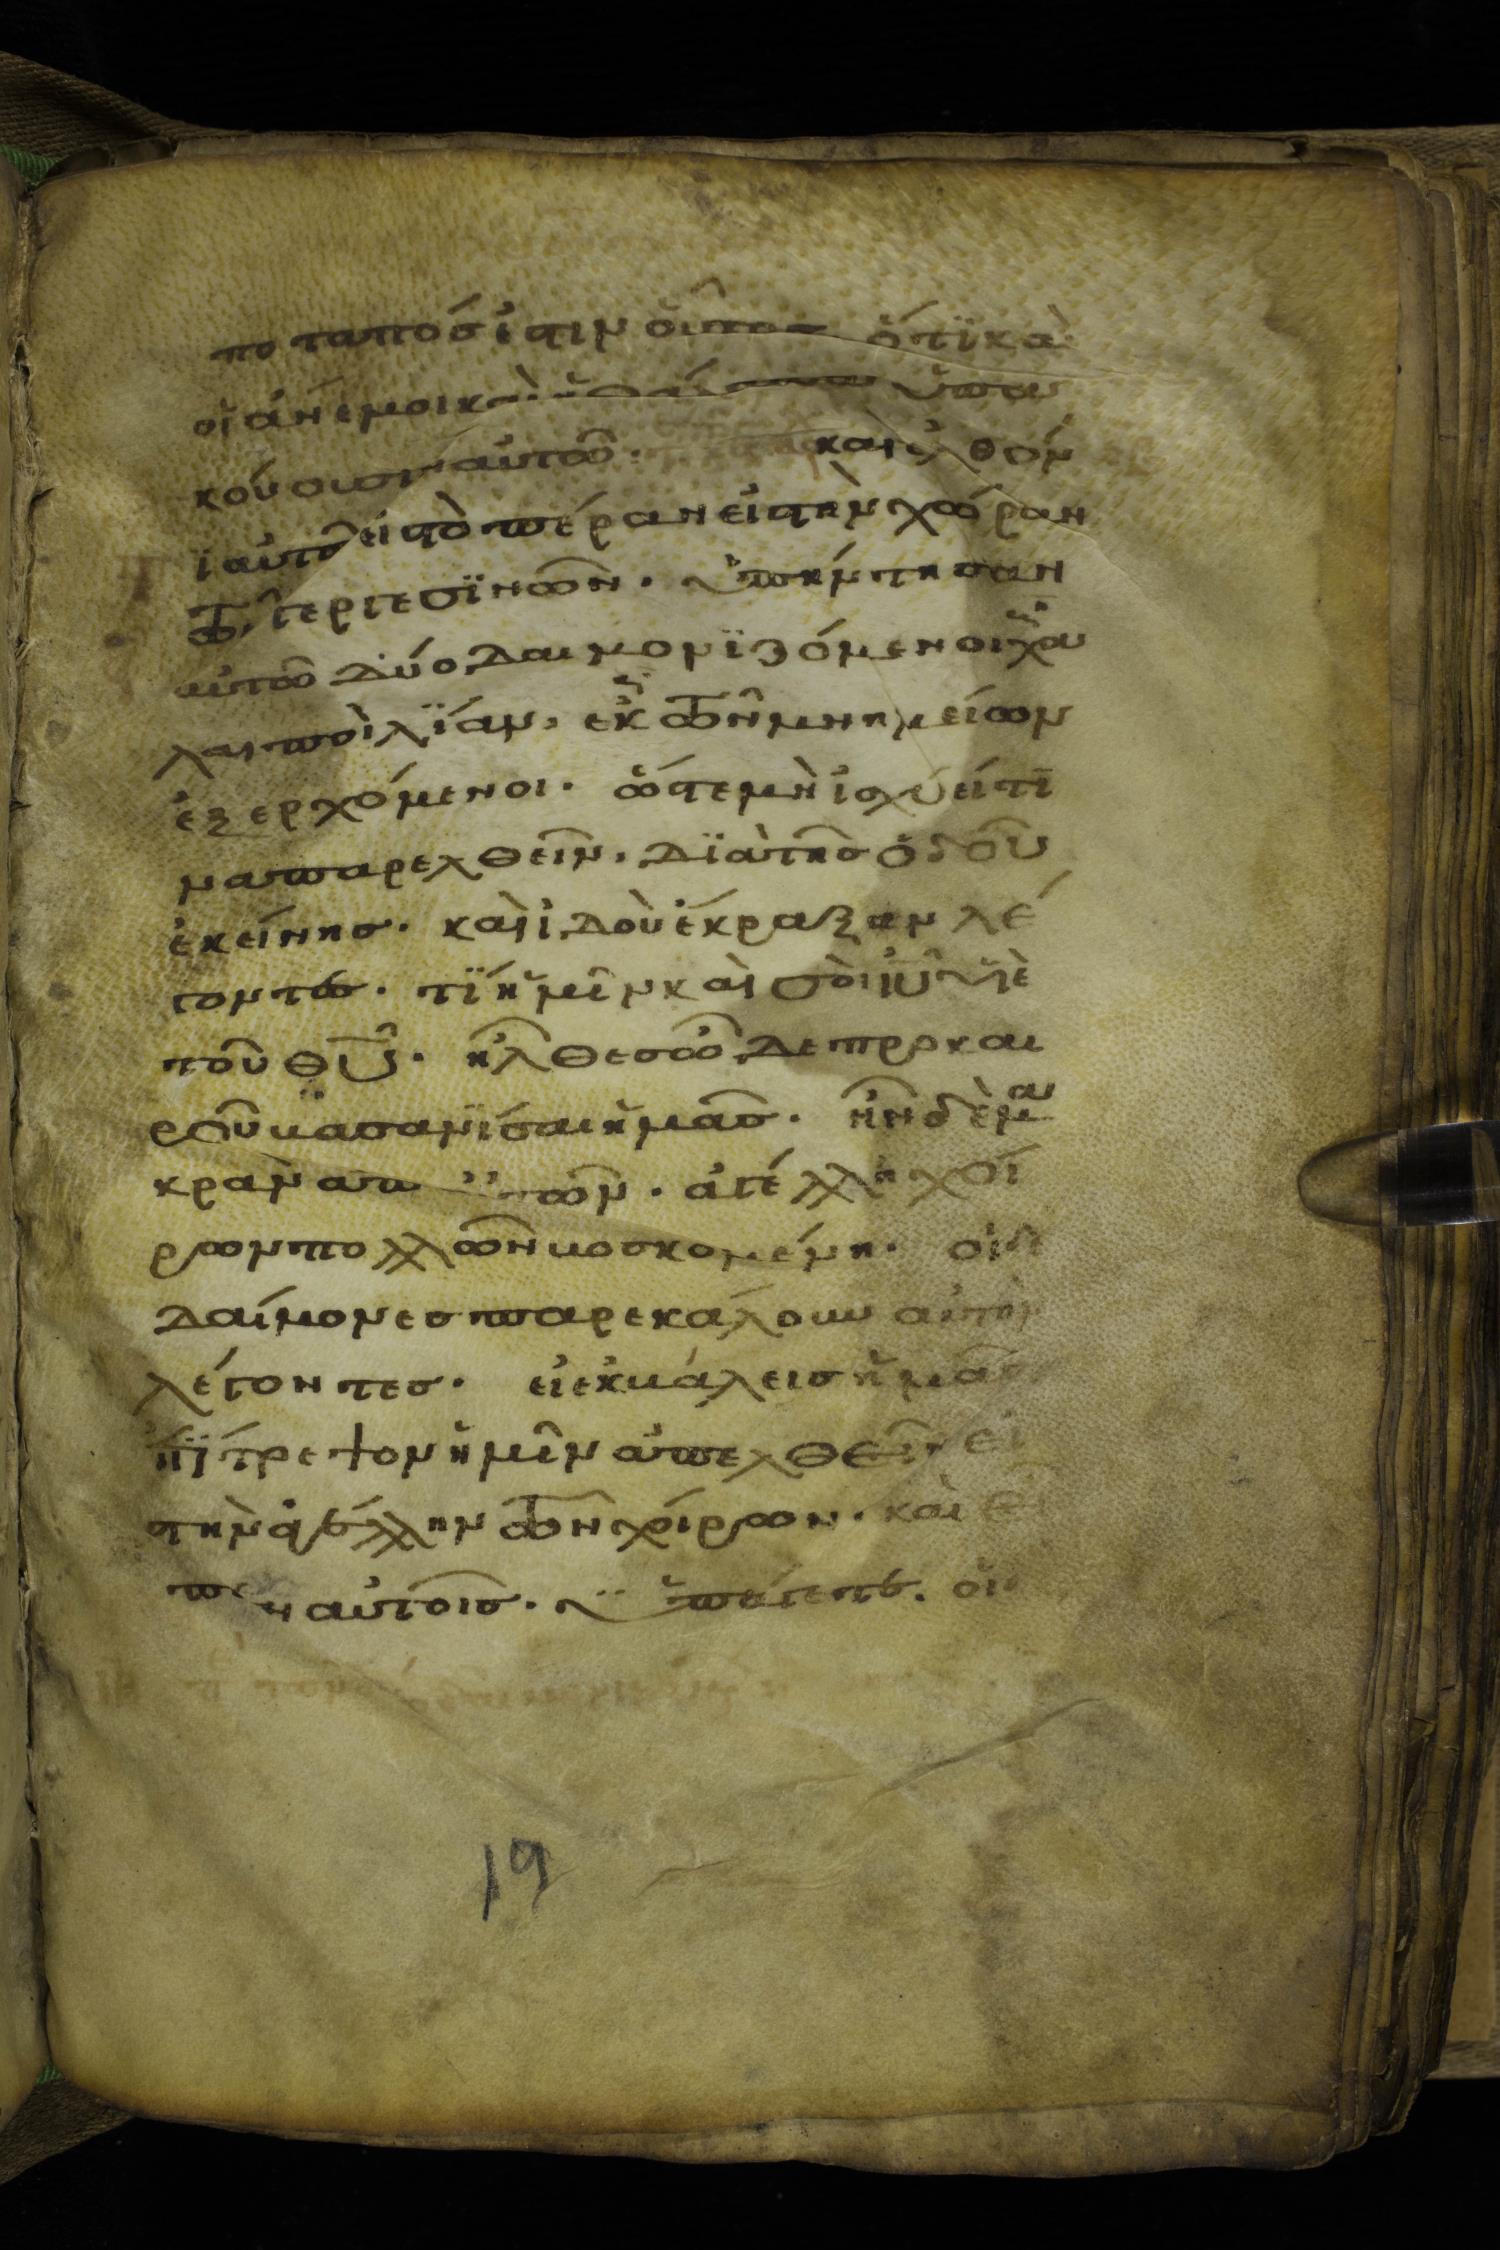 ποταπός ἐστιν οὗτος ὅτι καὶ
οἱ ἄνεμοι καὶ ἡ θάλασσα ὑπα
κούουσιν αὐτῷ. και ἐλθόν
τι αὐτῷ εἰς τὸ πέραν εἰς τὴν χώραν
τῶν γεργεσϊνῶν. ὑπήντησαν
αὐτῷ δύο δαιμονϊζόμενοι χα
λεποὶ λΐαν, ἐκ τῶν μνημείων
ἐξερχόμενοι. ὥστε μὴ ἰσχύειν τι
να παρελθεῖν, δϊὰ τῆς ὁδοῦ
ἐκείνης. καὶ ἰδοὺ ἔκραξαν λέ
γοντες. τΐ ἡμῖν καὶ σοὶ ιυ υἱὲ
τοῦ θυ. ἦλθες ὧδε προ και
ροῦ βασανΐσαι ἡμᾶς. ἦν δὲ μα
κρὰν ἀπ αὐτῶν. ἀγέλη χοί
ρων πολλῶν βοσκομένη. οἱ δὲ
δαίμονες παρεκάλουν αὐτὸν
λέγοντες. εἰ ἐκβάλεις ἡμᾶς
ἐπΐτρεψον ἡμῖν ἀπελθεῖν εἰ
ς τὴν ἀγέλην τῶν χοίρων. καὶ εἶ
πεν αὐτοῖς. ὑπάγετε. οἱ
19